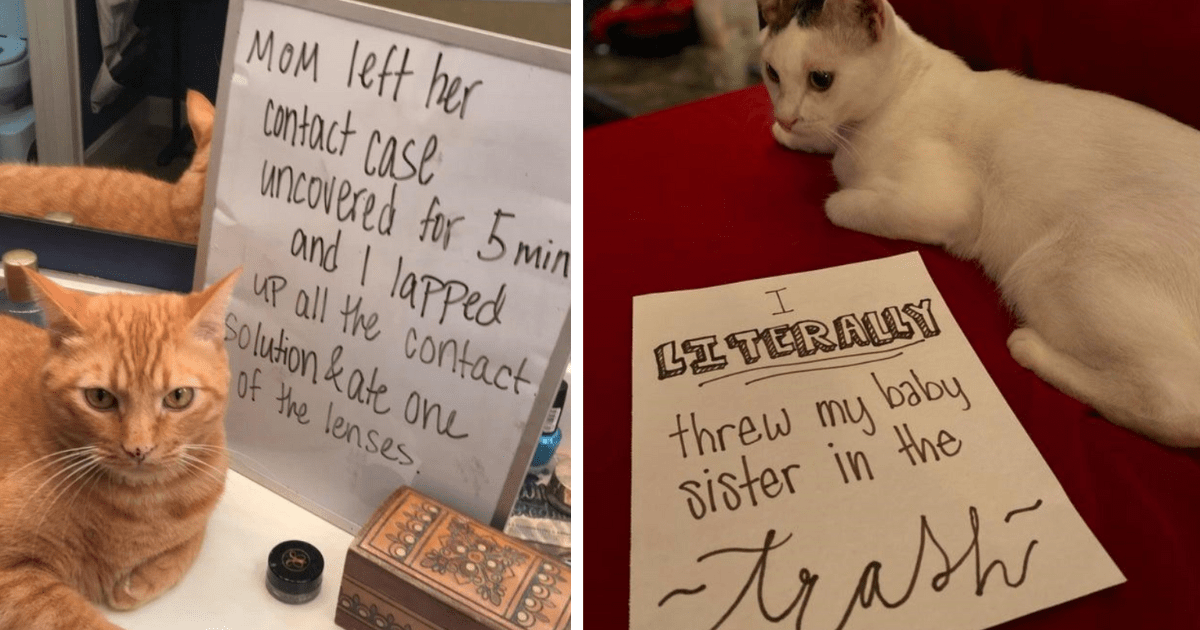 MOM left her
contact case
uncovered for 5 min
and I lapped
up all the contact
solution & ate one
of the lenses.
I
LITERALLY
threw my baby
sister in the
~trash~